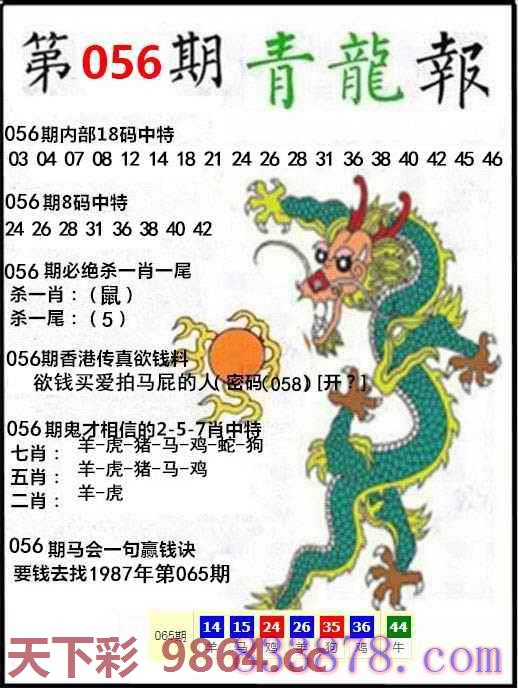 第056期青龍報
056期内部18码中特
03 04 07 08 12 14 18 21 24 26 28 31 36 38 40 42 45 46
056期8码中特
24 26 28 31 36 38 40 42
056期必绝杀一肖一尾
杀一肖：(鼠)
杀一尾：(5)
056期香港传真欲钱料
欲钱买爱拍马屁的人(密码(058)[开?]
056期鬼才相信的2-5-7肖中特
七肖： 羊-虎-猪-马-鸡-蛇-狗
五肖： 羊-虎-猪-马-鸡
二肖： 羊-虎
056期马会一句赢钱诀
要钱去找1987年第065期
065期 14 15 24 26 35 36 44
羊 马 鸡 羊 狗 鸡 牛
天下彩 9864.cc